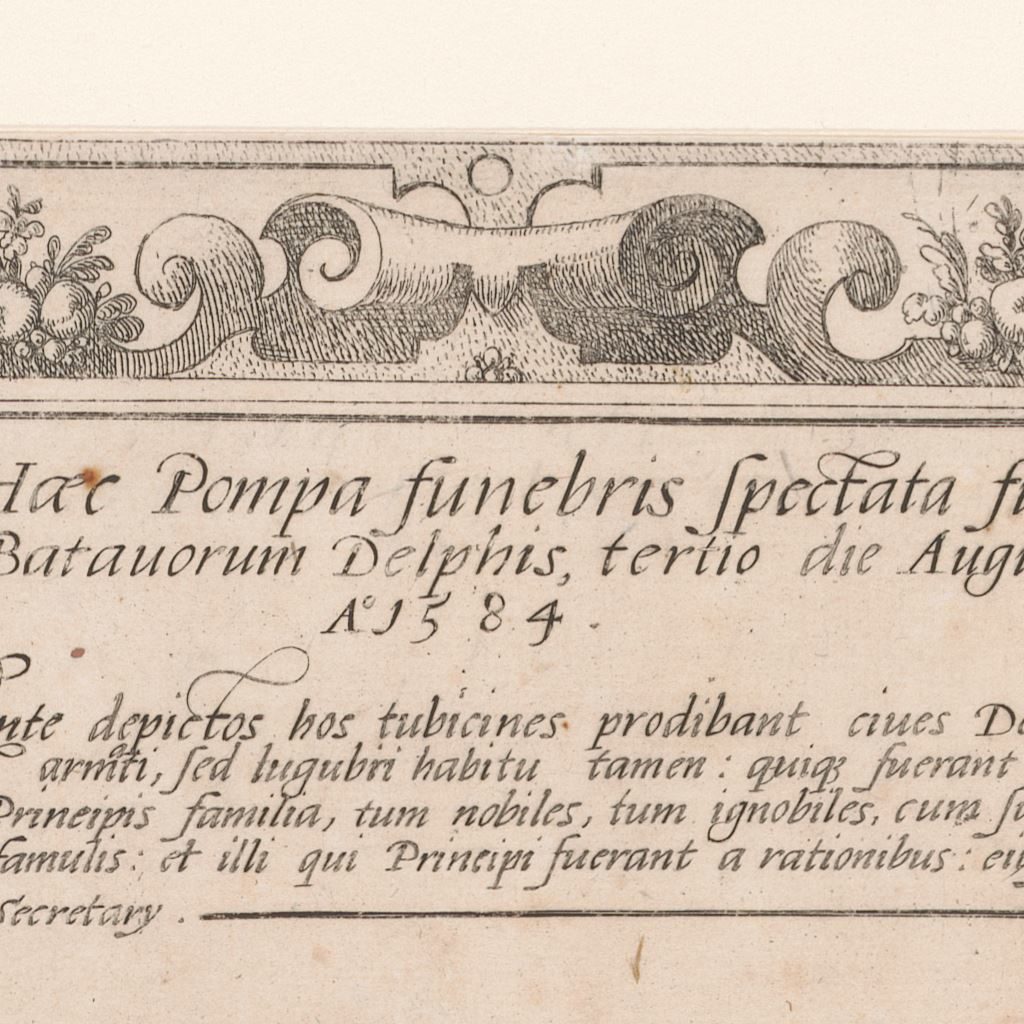 Hæc Pompa funebris ſpectata fu
Batauorum Delphis, tertio die Augu
A° 1584.
nte depictos hos tubicines prodibant ciues De
armati, ſed lugubri habitu tamen: quiqꝫ fuerant
Principis familia, tum nobiles, tum ignobiles, cum ſu
famulis: et illi qui Principi fuerant a rationibus: eiu
Secretarÿ.